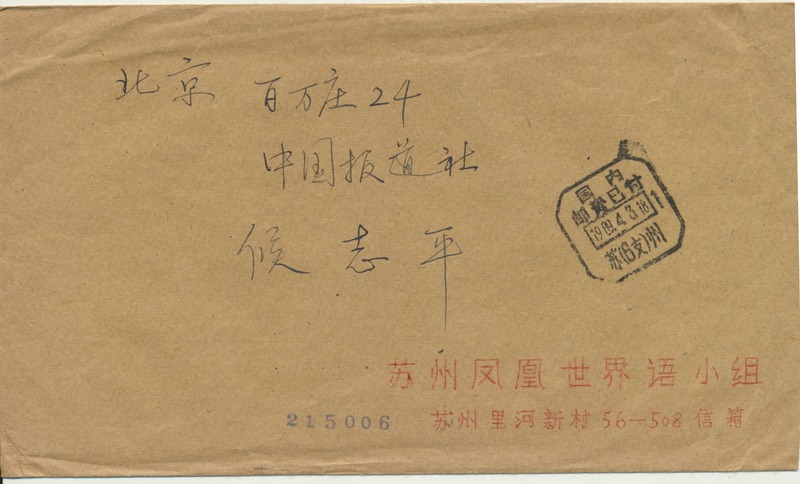 北京 百万庄24
中国报道社
侯志平
国内
邮资已付
1989.4.3.18
1
苏(6支)州
苏州凤凰世界语小组
215006
苏州里河新村56—508信箱